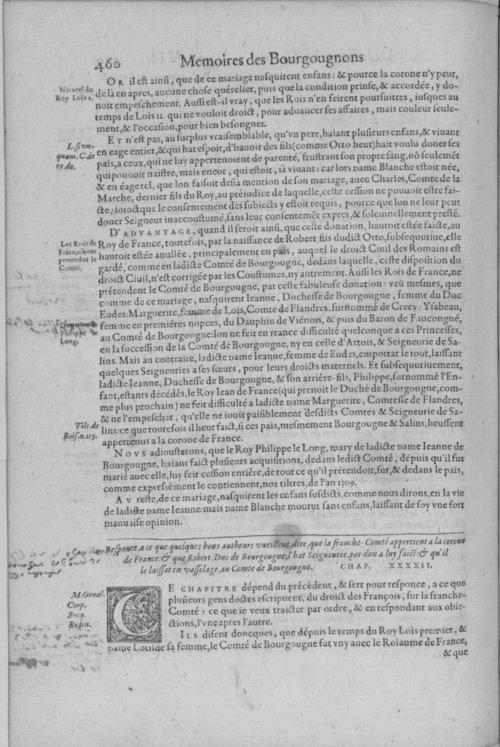 460 Memoires des Bourgougnons
OR il est ainsi, que de ce mariage nasquirent enfans: & pource la corone n'y peut,
Naturel du
Roy Loïs
de là en apres, aucune chose quéreller, puis que la condition prinse, & accordée, y do-
noit empeschement. Aussi est-il vray, que les Rois n'en feirent poursuittes, iusques au
temps de Loïs 11. qui ne vouloit droict, pour aduancer ses affaires, mais couleur seule-
ment, & l'occasion, pour bien besongner.
ET n'est pas, au surplus vraisemblable, qu'vn pere, haiant plusieurs enfans, & viuant
en eage entier, & qui hat espoir, d'hauoir des fils (comme Otto heut) hait voulu doner ses
païs, à ceux, qui ne luy appertenoient de parenté, frustrant son propre sang, nō seulemēt
qui pouuoit naistre, mais encor, qui estoit, ià viuant: car lors dame Blanche estoit née,
& en éage tel, que lon faisoit desia mention de son mariage, auec Charles, Comte de la
Marche, dernier fils du Roy, au préiudice de laquelle, ceste cession ne pouuoit estre fai-
cte: ioinct que le consentement des subiects y estoit requis, pource que lon ne leur peut
doner Seigneur inaccoustumé, sans leur consentemēt expres, & solemnellement presté.
D'AVANTAGE, quand il seroit ainsi, que ceste donation, hauroit estée faicte, au
Les Rois de
France, n'ont
pretendu le
Comté.
Roy de France, toutefois, par la naissance de Robert, fils dudict Otto, subsequutiue, elle
hauroit estée anullée, principalement en païs, auquel le droict Ciuil des Romains est
gardé, comme en ladicte Comté de Bourgougne, dedans laquelle, ceste disposition du
droict Ciuil, n'est corrigée par les Coustumes, ny autrement. Aussi les Rois de France, ne
prétendirent le Comté de Bourgougne, par ceste fabuleuse donation: veu mesmes, que
comme de ce mariage, nasquirent Ieanne, Duchesse de Bourgougne, femme du Duc
Eudes: Marguerite, femme de Loïs, Comte de Flandres, surnommé de Crecy: Ysabeau,
Philippe le
Long.
femme en premieres nopces, du Dauphin de Viénois, & puis du Baron de Faucongne,
au Comté de Bourgougne: lon ne feit en France difficulté quelconque a ces Princesses,
en la succession de la Comté de Bourgougne, ny en celle d'Artois, & Seigneurie de Sa-
lins. Mais au contraire, ladicte dame Ieanne, femme de Eudes, emportat le tout, laissant
quelques Seigneuries a ses sœurs, pour leurs droicts maternels. Et subsequutiuement,
ladicte Ieanne, Duchesse de Bourgougne, & son arriere-fils, Philippe, surnommé l'En-
fant, estants décédés, le Roy Iean de France (qui prenoit le Duché de Bourgougne, com-
me plus prochain) ne feit difficulté a ladicte dame Marguerite, Comtesse de Flandres,
& ne l'empeschat, qu'elle ne iouït paisiblement desdicts Comtes & Seigneurie de Sa-
Tilt. de
lins: ce que toutefois il heut faict, si ces païs, mesmement Bourgougne & Salins, heussent
appertenus a la corone de France.
NOVS adiousterons, que le Roy Philippe le Long, mary de ladicte dame Ieanne de
Bourgougne, haiant faict plusieurs acquisitions, dedans ledict Comté, depuis qu'il fut
marié auec elle, luy feit cession entiére, de tout ce qu'il prétendoit, sur, & dedans le païs,
comme expresément le contiennent, noz tiltres, de l'an 1309.
AV reste, de ce mariage, nasquirent les enfans susdicts, comme nous dirons, en la vie
de ladicte dame Ieanne: mais dame Blanche mourut sans enfans, laissant de soy vne fort
mauuaise opinion.
Response a ce que quelques bons autheurs vueillent dire, que la franche-Comté appertient a la corone
de France: & que Robert, Duc de Bourgougne, l'hat Seigneurie, par don a luy faict: & qu'il
le laissat en vasselage, au Comte de Bourgougne. CHAP. XXXXII.
CE CHAPITRE dépend du précédent, & sert pour responce, a ce que
plusieurs gens doctes escripuent, du droict des François, sur la franche-
Comté: ce que ie veux traicter par ordre, & en respondant aux obie-
ctions, l'vne apres l'autre.
ILS disent doncques, que dépuis le temps du Roy Loïs premier, &
dame Louïde sa femme, le Comté de Bourgougne fut vny auec le Roïaume de France,
& que